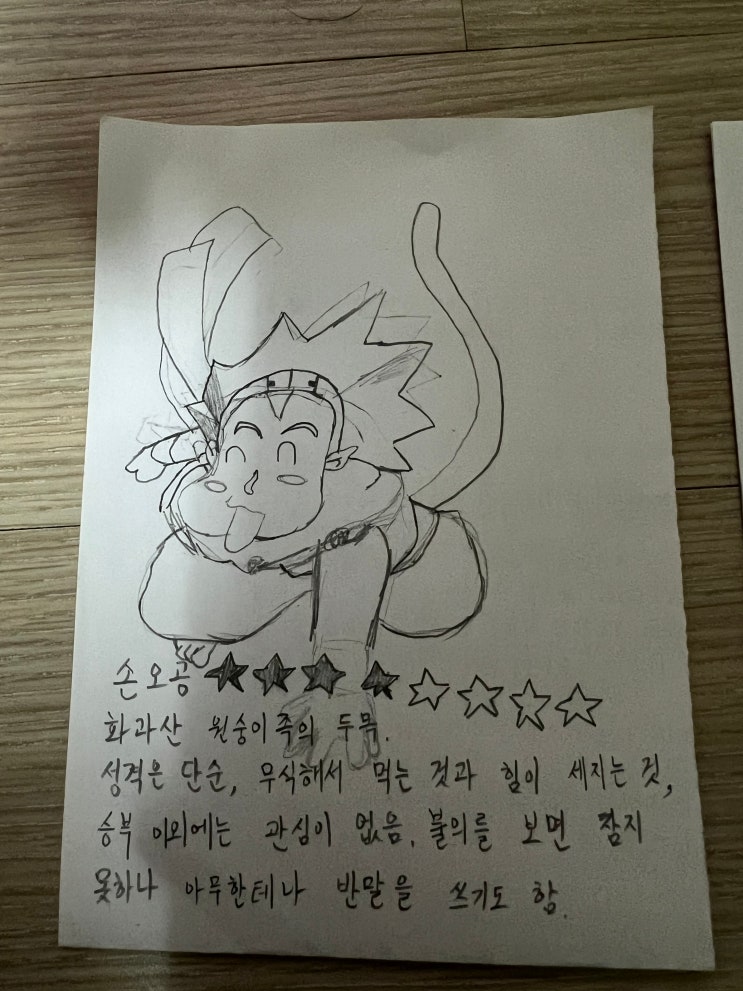 손오공 ★★★★☆☆☆☆
화과산 원숭이족의 두목.
성격은 단순, 무식해서 먹는 것과 힘이 세지는 것,
승부 이외에는 관심이 없음. 불의를 보면 참지
못하나 아무한테나 반말을 쓰기도 함.